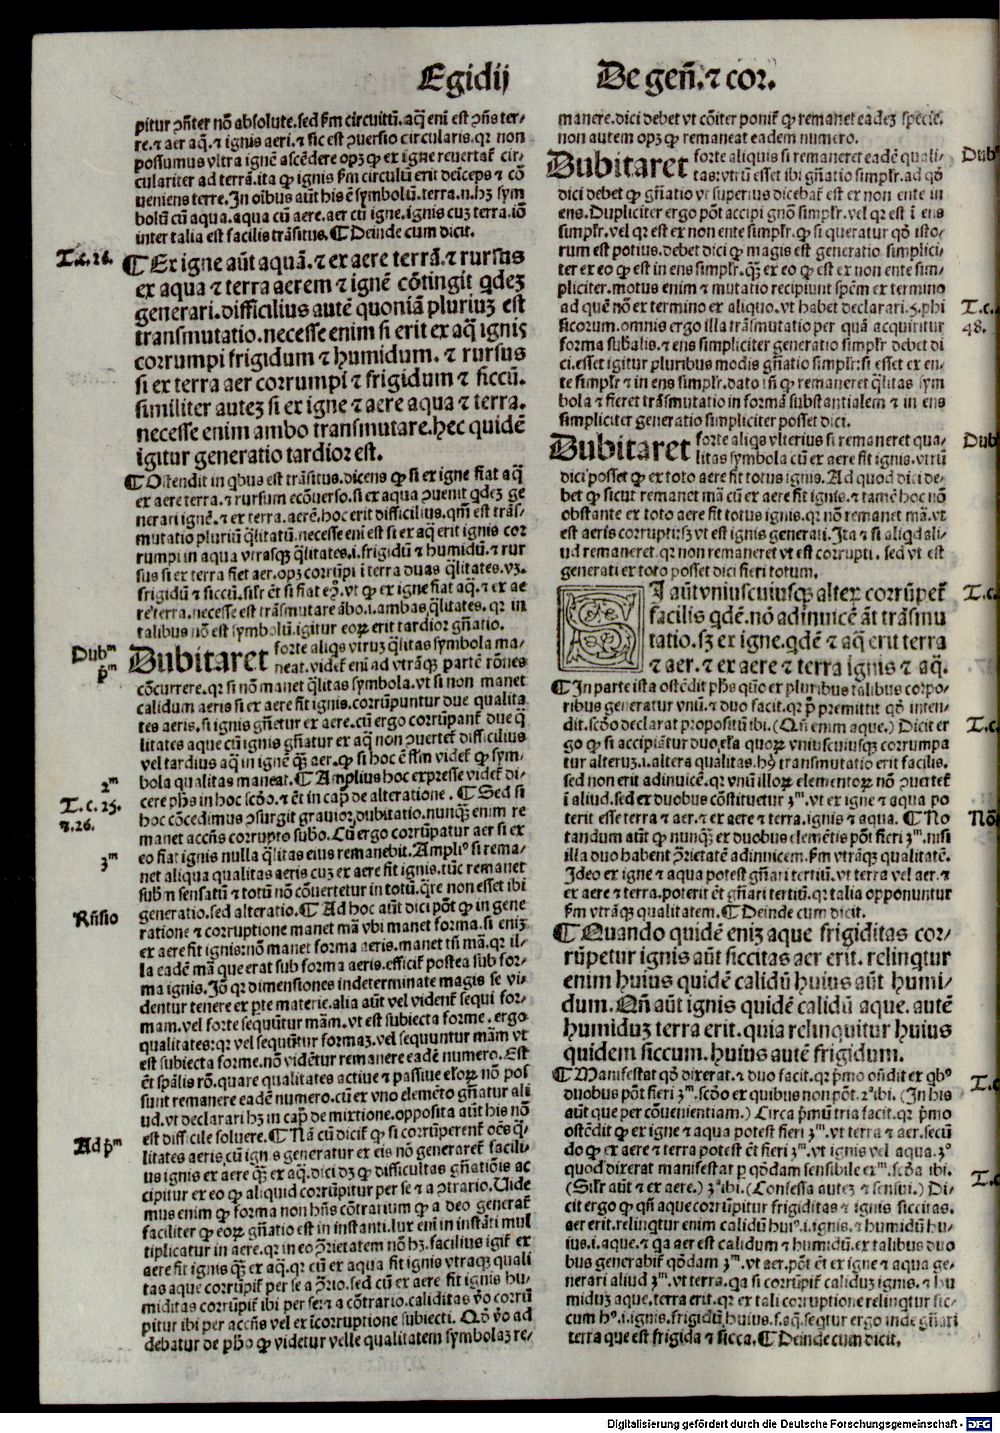 Egidij
De gen̄. ⁊ cor.
pitur ↄñter nō absolute. sed ẜm circuitū. aq̄ enī est ꝓñs ter-
re. ⁊ aer aq̄. ⁊ ignis aeri. ⁊ sic est ↄuersio circularis. qꝛ non
possumus vltra ignē ascēdere opꝫ ꝙ ex igne reuertat᷑ cir-
culariter ad terrā. ita ꝙ ignis ẜm circulū erit deiceps ⁊ cō
ueniens terre. In oībus aūt his ē symbolū. terra. n. hꝫ sym
bolū cū aqua. aqua cū aere. aer cū igne. ignis cuꝫ terra. iō
inter talia est facilis trāsitus. ¶ Deinde cum dicit.
T. c. 26.
¶ Ex igne aūt aquā. ⁊ ex aere terrā. ⁊ rursus
ex aqua ⁊ terra aerem ⁊ ignē cōtingit qdeꝫ
generari. difficilius autē quoniā pluriuꝫ est
transmutatio. necesse enim si erit ex aq̄ ignis
corrumpi frigidum ⁊ humidum. ⁊ rursus
si ex terra aer corrumpi ⁊ frigidum ⁊ siccū.
similiter auteꝫ si ex igne ⁊ aere aqua ⁊ terra.
necesse enim ambo transmutare. hec quidē
igitur generatio tardior est.
¶ Ostendit in qbus est trāsitus. dicens ꝙ si ex igne fiat aq̄
ex aere terra. ⁊ rursum ecōuerso. si ex aqua ↄuenit qdeꝫ ge
nerari ignē. ⁊ ex terra. aerē. hoc erit difficilius. qm̄ est trās-
mutatio pluriū q̄litatū. necesse enī est si ex aq̄ erit ignis cor
rumpi in aqua vtrasqꝫ q̄litates. i. frigidū ⁊ humidū. ⁊ rur
sus si ex terra fiet aer. opꝫ corrūpi ī terra duas q̄litates. vꝫ.
frigidū ⁊ siccū. silr̄ ēt si fiat eꝯ. vt ꝙ ex igne fiat aq̄. ⁊ ex ae
re terra. necesse est trāsmutare ābo. i. ambas q̄litates. qꝛ in
talibus nō est symbolū. igitur eoꝝ erit tardior gn̄atio.
Dubᵐ
p̄ᵐ
Dubitaret forte aliqs vtruꝫ q̄litas symbola ma-
neat. videt᷑ enī ad vtrāqꝫ partē rōnes
cōcurrere. qꝛ si nō manet q̄litas symbola. vt si non manet
calidum aeris si ex aere fit ignis. corrūpuntur due qualita
tes aeris. si ignis gn̄etur ex aere. cū ergo corrūpant᷑ due q̄
litates aque cū ignis gn̄atur ex aq̄ non ↄuertet᷑ difficilius
vel tardius aq̄ in ignē qꝫ aer. ꝙ si hoc ē fīm videt᷑ ꝙ sym-
2ᵐ
bola qualitas maneat. ¶ Amplius hoc expresse videt᷑ di-
T. c. 25.
⁊. 26.
cere phs in hoc scdo. ⁊ ēt in cap̄ de alteratione. ¶ Sed si
hoc cōcedimus ↄsurgit grauior dubitatio. nunqꝫ enim re
manet accñs corrupto subo. Cū ergo corrūpatur aer si ex
3ᵐ
eo fiat ignis nulla q̄litas eius remanebit. Ampliꝰ si rema-
net aliqua qualitas aeris cuꝫ ex aere fit ignis. tūc remanet
subm̄ sensatū ⁊ totū nō cōuertetur in totū. q̄re non esset ibi
Rn̄sio
generatio. sed alteratio. ¶ Ad hoc aūt dici pōt ꝙ in gene
ratione ⁊ corruptione manet mā vbi manet forma. si eniꝫ
ex aere fit ignis: nō manet forma aeris. manet tn̄ mā. qꝛ il-
la eadē mā que erat sub forma aeris. efficit᷑ postea sub for-
ma ignis. Iō qꝛ dimensiones indeterminate magis se vi-
dentur tenere ex pte materie. alia aūt vel vident᷑ sequi for-
mam. vel forte sequūtur mām. vt est subiecta forme. ergo
qualitates: qꝛ vel sequūtur formaꝫ. vel sequuntur mām vt
est subiecta forme. nō vidētur remanere eadē numero. Est
ēt spālis rō. quare qualitates actiue ⁊ passiue eloꝝ nō pos
sunt remanere eadē numero. cū ex vno elemēto gn̄atur ali
ud. vt declarari hꝫ in cap̄ de mixtione. opposita aūt his nō
Ad p̄ᵐ
est difficile soluere. ¶ Nā cū dicit᷑ ꝙ si corrūperent᷑ oēs q̄-
litates aeris cū ignis generatur ex eis nō generaret᷑ facili-
us ignis ex aere qꝫ ex aq̄. dici dꝫ ꝙ difficultas gn̄atiōis ac
cipitur ex eo ꝙ aliquid corrūpitur per se ⁊ a ↄtrario. Uide
mus enim ꝙ forma non hñs cōtrarium ꝙ a deo generat᷑
faciliter ꝙ eoꝝ gn̄atio est in instanti. lux enī in instāti mul
tiplicatur in aere. qꝛ in eo ↄrietatem nō hꝫ. facilius igit᷑ ex
aere fit ignis qꝫ ex aq̄. qꝛ cū ex aqua fit ignis vtraqꝫ quali
tas aque corrūpit᷑ per se a ↄrio. sed cū ex aere fit ignis hu-
miditas corrūpit᷑ ibi per se: ⁊ a cōtrario. caliditas v̄o corrū
pitur ibi per accñs vel ex īcorruptione subiecti. Qd̄ v̄o ad
debatur de pho ꝙ videtur velle qualitatem symbolaꝫ re-
manere. dici debet vt cōiter ponit᷑ ꝙ remanet eadeꝫ specie.
non autem opꝫ ꝙ remaneat eadem numero.
Dub
Dubitaret forte aliquis si remaneret eadē quali-
tas: vtrū esset ibi gn̄atio simplr̄. ad qd̄
dici debet ꝙ gn̄atio vt superius dicebat᷑ est ex non ente in
ens. Dupliciter ergo pōt accipi gn̄o simplr̄. vel qꝛ est ī ens
simplr̄. vel qꝛ est ex non ente simplr̄. ꝙ si queratur qd̄ isto-
rum est potius. debet dici ꝙ magis est generatio simplici-
ter ex eo ꝙ est in ens simplr̄. qꝫ ex eo ꝙ est ex non ente sim-
pliciter. motus enim ⁊ mutatio recipiunt spēm ex termino
T. c.
48.
ad quē nō ex termino ex aliquo. vt habet declarari. 5. phi
sicorum. omnis ergo illa trāsmutatio per quā acquiritur
forma sub̄alis. ⁊ ens simpliciter generatio simplr̄ debet di
ci. esset igitur pluribus modis gn̄atio simplr̄: si esset ex en-
te simplr̄ ⁊ in ens simplr̄. dato tn̄ ꝙ remaneret q̄litas sym
bola ⁊ fieret trāsmutatio in formā substantialem ⁊ in ens
simpliciter generatio simpliciter posset dici.
Dub
Dubitaret forte aliqs vlterius si remaneret qua-
litas symbola cū ex aere fit ignis. vtrū
dici posset ꝙ ex toto aere fit totus ignis. Ad quod dici de-
bet ꝙ sicut remanet mā cū ex aere fit ignis. ⁊ tamē hoc nō
obstante ex toto aere fit totus ignis. qꝛ nō remanet mā. vt
est aeris corrupti: sꝫ vt est ignis generati. Ita ⁊ si aliqd ali-
ud remaneret. qꝛ non remaneret vt est corrupti. sed vt est
generati ex toto posset dici fieri totum.
T. c.
SI aūt vniuscuiusqꝫ alteꝝ corrūpet᷑
facilis qdē. nō adinuicē āt trāsmu
tatio. sꝫ ex igne. qdē ⁊ aq̄ erit terra
⁊ aer. ⁊ ex aere ⁊ terra ignis ⁊ aq̄.
¶ In parte ista ostēdit phs quō ex pluribus talibus corpo-
ribus generatur vnū. ⁊ duo facit. qꝛ p̄ premittit qd̄ inten-
T. c.
dit. scdo declarat propositū ibi. (Qn̄ enim aque.) Dicit er
go ꝙ si accipiātur duo ela quoꝝ vniuscuiusqꝫ corrumpa
tur alteruꝫ. i. altera qualitas. hꝰ transmutatio erit facilis.
sed non erit adinuicē. qꝛ vnū illoꝝ elementoꝝ nō ↄuertet᷑
ī aliud. sed ex duobus cōstituetur 3ᵐ. vt ex igne ⁊ aqua po
Nō
terit esse terra ⁊ aer. ⁊ ex aere ⁊ terra. ignis ⁊ aqua. ¶ No
tandum aūt ꝙ nunqꝫ ex duobus elemētis pōt fieri 3ᵐ. nisi
illa duo habent ↄrietatē adinuicem. ẜm vtrāqꝫ qualitatē.
Ideo ex igne ⁊ aqua potest gn̄ari tertiū. vt terra vel aer. ⁊
ex aere ⁊ terra. poterit ēt gn̄ari tertiū. qꝛ talia opponuntur
ẜm vtrāqꝫ qualitatem. ¶ Deinde cum dicit.
¶ Quando quidē eniꝫ aque frigiditas cor-
rūpetur ignis aūt siccitas aer erit. relinqtur
enim huius quidē calidū huius aūt humi-
dum. Qn̄ aūt ignis quidē calidū aque. autē
humiduꝫ terra erit. quia relinquitur huius
quidem siccum. huius autē frigidum.
T. c.
¶ Manifestat qd̄ dixerat. ⁊ duo facit. qꝛ p̄mo on̄dit ex qbꝰ
duobus pōt fieri 3ᵐ. scdo ex quibus non pōt. 2ᵃ ibi. (In his
aūt que per cōuenientiam.) Circa p̄mū tria facit. qꝛ p̄mo
ostēdit ꝙ ex igne ⁊ aqua potest fieri 3ᵐ. vt terra ⁊ aer. secū
do ꝙ ex aere ⁊ terra potest ēt fieri 3ᵐ. vt ignis vel aqua. 3ᵒ
T. c
quod dixerat manifestat p qōdam sensibile exᵐ. scda ibi.
(Silr̄ aūt ⁊ ex aere.) 3ᵃ ibi. (Confessa auteꝫ ⁊ sensui.) Di-
cit ergo ꝙ qn̄ aque corrūpitur frigiditas ⁊ ignis siccitas.
aer erit. relinqtur enim calidū huiꝰ. i. ignis. ⁊ humidū hu-
ius. i. aque. ⁊ qa aer est calidum ⁊ humidū. ex talibus duo
bus generabit᷑ qōdam 3ᵐ. vt aer. pōt ēt ex igne ⁊ aqua ge-
nerari aliud 3ᵐ. vt terra. qa si corrūpit᷑ caliduꝫ ignis. ⁊ hu
miduꝫ aque. terra erit. qꝛ ex tali corruptione relinqtur sic-
cum hꝰ. i. ignis. frigidū huius. s. aq̄. seqtur ergo inde gn̄ari
terra que est frigida ⁊ sicca. ¶ Deinde cum dicit.
Digitalisierung gefördert durch die Deutsche Forschungsgemeinschaft - DFG